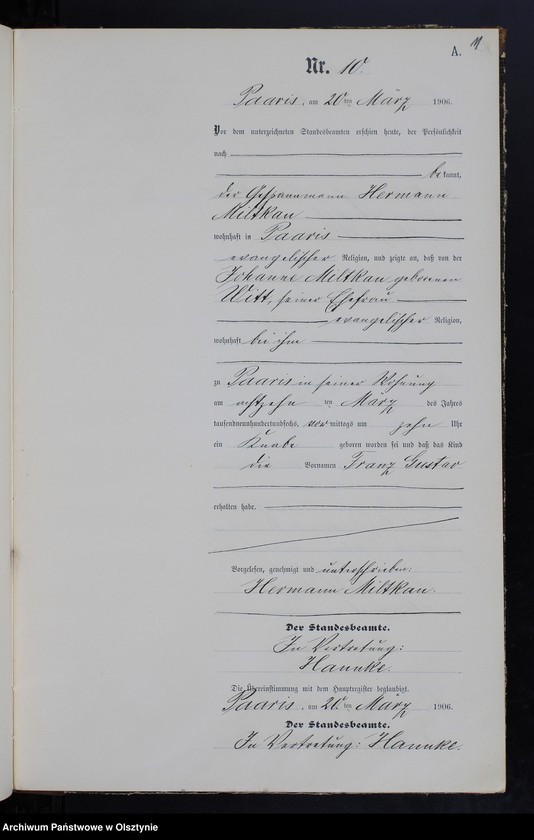 A.
11
Nr. 10.
Paaris, am 20ten März 1906.
Vor dem unterzeichneten Standesbeamten erschien heute, der Persönlichkeit
nach
bekannt,
der Gespannmann Hermann
Miltkau
wohnhaft in Paaris
evangelischer Religion, und zeigte an, daß von der
Johanne Miltkau geborenen
Witt, seiner Ehefrau
evangelischer Religion,
wohnhaft bei ihm
zu Paaris in seiner Wohnung
am achtzehn ten März des Jahres
tausendneunhundertundsechs, vormittags um zehn Uhr
ein Knabe geboren worden sei und daß das Kind
die Vornamen Franz Gustav
erhalten habe.
Vorgelesen, genehmigt und unterschrieben:
Hermann Miltkau.
Der Standesbeamte.
In Vertretung:
Hannke.
Die Übereinstimmung mit dem Hauptregister beglaubigt.
Paaris, am 20ten März 1906.
Der Standesbeamte.
In Vertretung: Hannke.
Archiwum Państwowe w Olsztynie